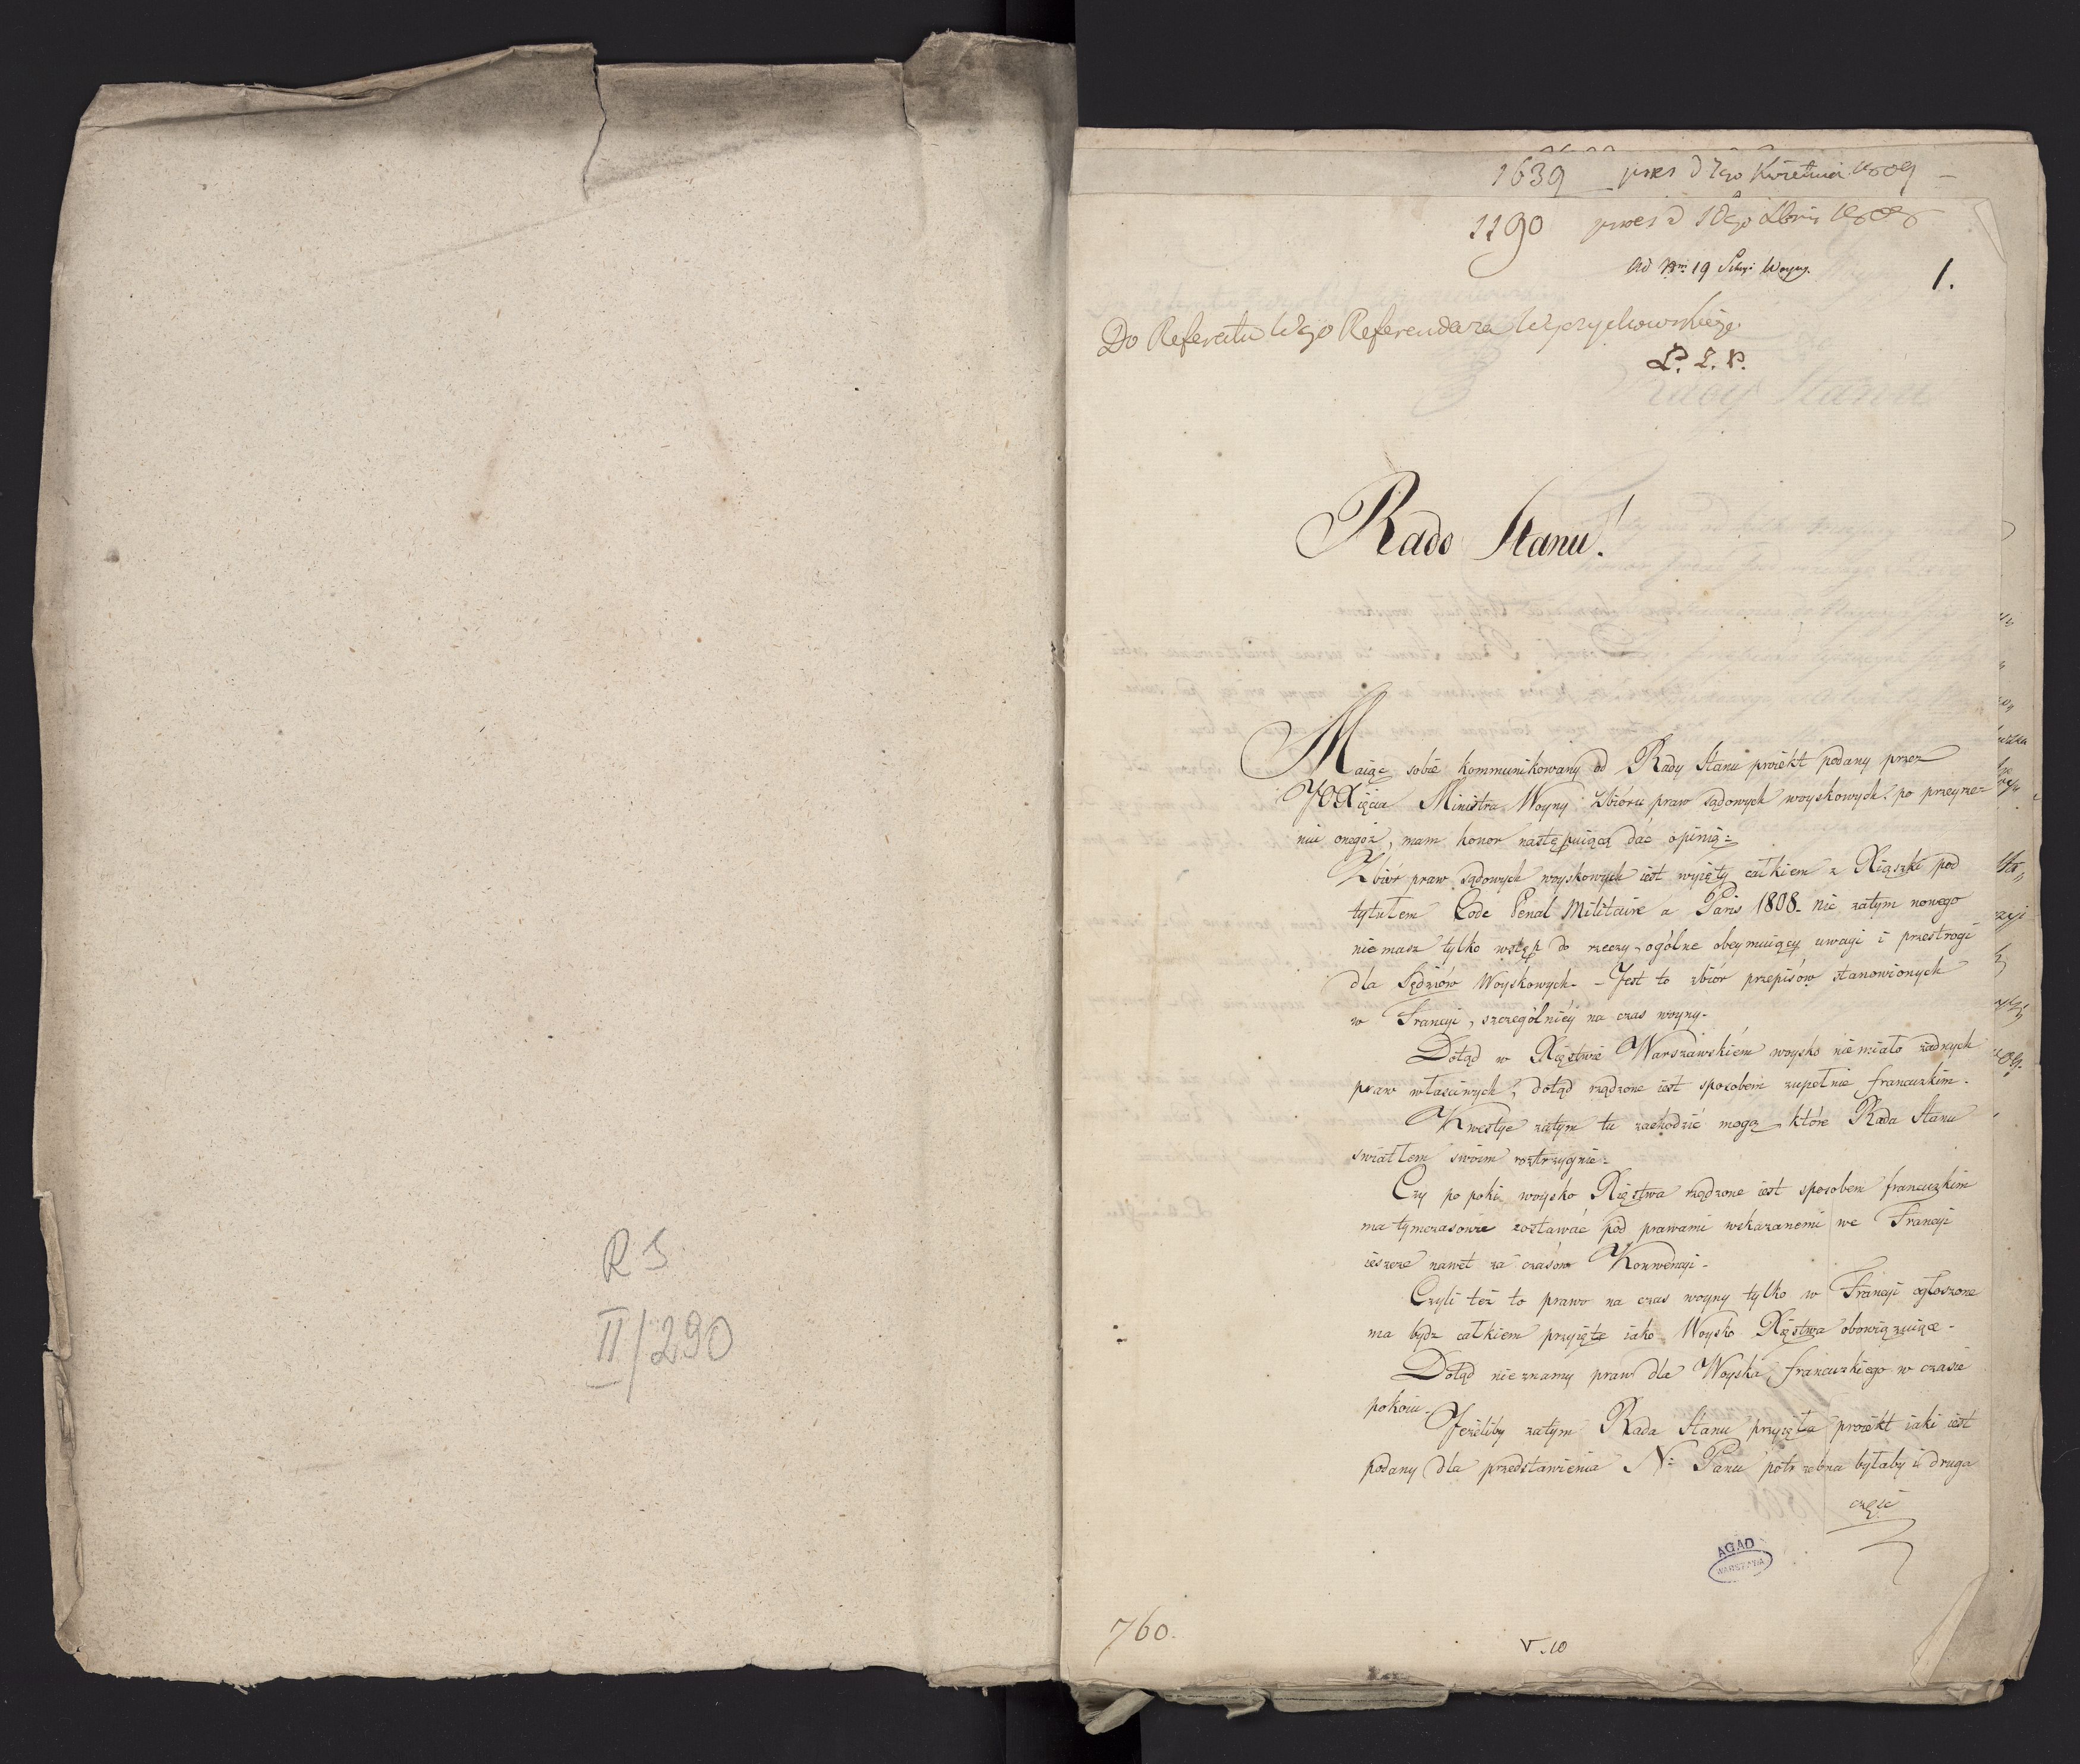 R S
II/290
1639 pres d 7go Kwietnia 1809
1190 pres d 10go Xbris 1808
Ad Nrm 19 Sekcyi Woyny.
1.
Do Referatu Wgo Referendarza Wyczechowskiego
Rado Stanu!
Maiąc sobie kommunikowany od Rady Stanu proiekt podany przez
JOXięcia Ministra Woyny Zbióru praw sądowych woyskowych. po przeyrze=
niu onegoż, mam honor następuiącą dać opinią:
Zbiór praw sądowych woyskowych iest wyięty całkiem z Xiąszki pod
tytułem Code Penal Militaire a Paris 1808. nic zatym nowego
niemasz tylko wstęp do rzeczy ogólne obeymuiący uwagi i przestrogi
dla Sędziów Woyskowych. - Jest to zbiór przepisów stanowionych
w Francyi, szczególniey na czas woyny.
Dotąd w Xięstwie Warszawskiém woysko niemiało żadnych
praw właściwych, dotąd rządzone iest sposobem zupełnie francuzkim.
Kwestye zatym tu zachodzić mogą które Rada Stanu
swiatłem swoim roztrzygnie:
Czy po poki woysko Xięstwa rządzone iest sposobem francuzkim
ma tymczasowie zostawać pod prawami wskazanemi we Francyi
ieszcze nawet za czasów Konwencyi.
Czyli też to prawo na czas woyny tylko w Francyi ogłoszone
ma bydz całkiem przyięte iako Woysko Xięstwa obowiązuiące.
Dotąd nieznamy praw dla Woyska francuzkiego w czasie
pokoiu.
Jeżeliby zatym Rada Stanu przyięła proiekt iaki iest
podany dla przedstawienia N: Panu potrzebna byłaby i druga
częsć
AGAD
WARSZAWA
760.
V. 10